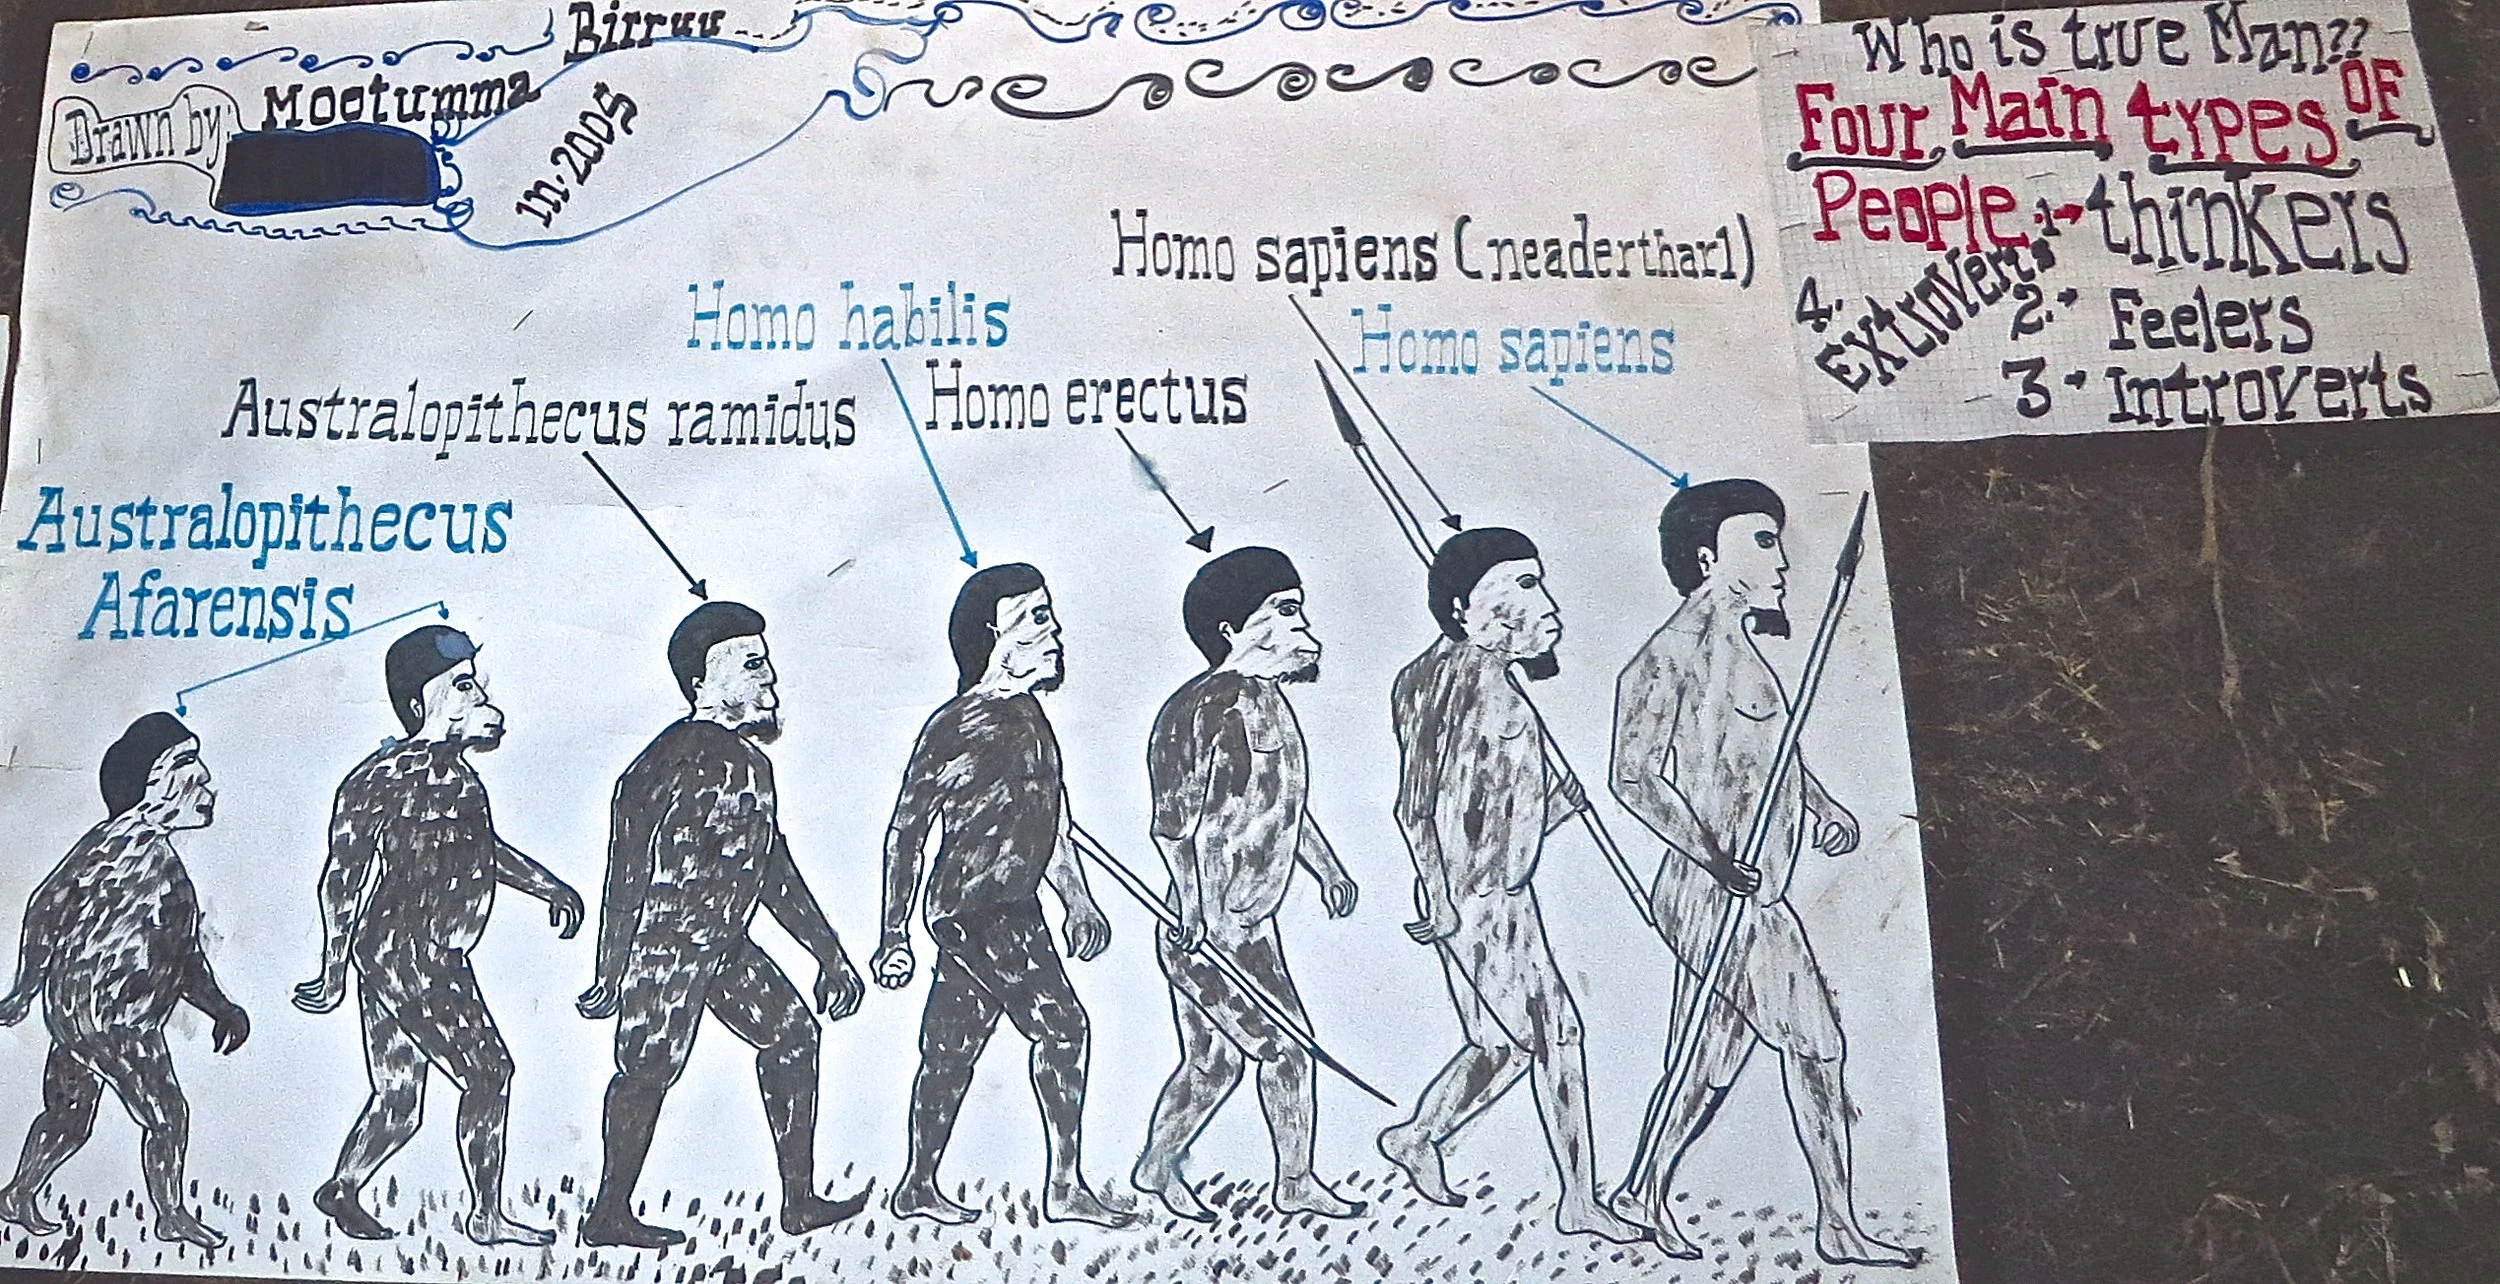 Birruu
Drawn by: Mootumma
in.2005
Homo sapiens (neaderthar1)
Homo habilis
Homo sapiens
Homo erectus
Australopithecus ramidus
Australopithecus
Afarensis
Who is true Man??
Four Main types OF
People:1→thinkers
2.→ Feelers
3→ Introverts
4. Extroverts